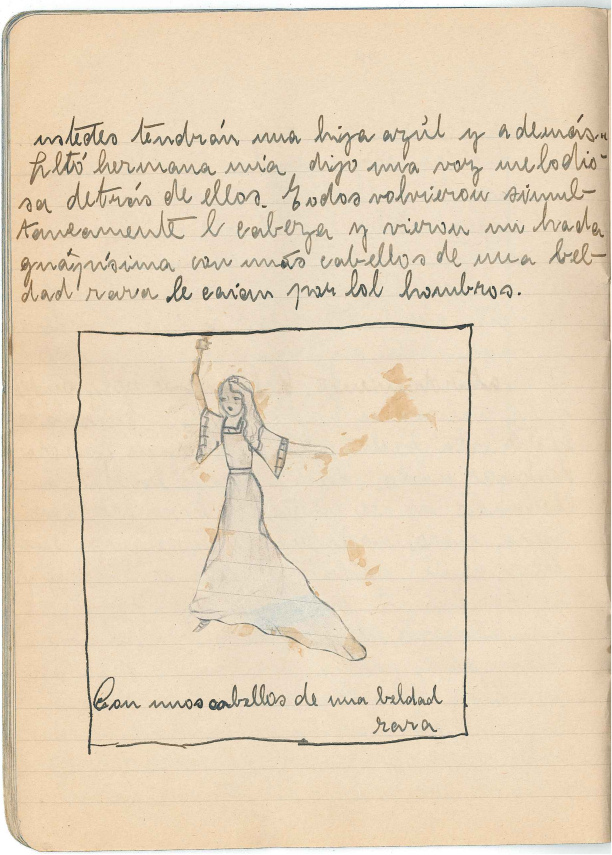 ustedes tendrán una hija azúl y además..
¡Altó hermana mía, dijo una voz melodio-
sa detrás de ellos. Todos volvieron simul-
taneamente l cabeza y vieron un hada
guápísima con unos cabellos de una bel-
dad rara le caian por lol hombros.
Con unos cabellos de una beldad
rara